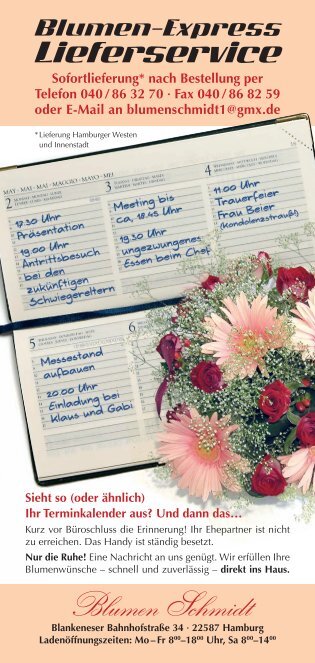 Blumen-Express
Lieferservice
Sofortlieferung* nach Bestellung per
Telefon 040/86 32 70 · Fax 040/86 82 59
oder E-Mail an blumenschmidt1@gmx.de
*Lieferung Hamburger Westen
und Innenstadt
MAY · MAI · MAI · MAGGIO · MAYO · MEI
2
17.30 Uhr
Präsentation
19.00 Uhr
Antrittsbesuch
bei den
zukünftigen
Schwiegereltern
3
Meeting bis
ca. 18.45 Uhr
19.30 Uhr
ungezwungenes
Essen beim Chef
4
11.00 Uhr
Trauerfeier
Frau Beier
(Kondolenzstrauß!)
5
Messestand
aufbauen
20.00 Uhr
Einladung bei
Klaus und Gabi
6
Sieht so (oder ähnlich)
Ihr Terminkalender aus? Und dann das…
Kurz vor Büroschluss die Erinnerung! Ihr Ehepartner ist nicht
zu erreichen. Das Handy ist ständig besetzt.
Nur die Ruhe! Eine Nachricht an uns genügt. Wir erfüllen Ihre
Blumenwünsche – schnell und zuverlässig – direkt ins Haus.
Blumen Schmidt
Blankeneser Bahnhofstraße 34 · 22587 Hamburg
Ladenöffnungszeiten: Mo – Fr 8⁰⁰–18⁰⁰ Uhr, Sa 8⁰⁰–14⁰⁰